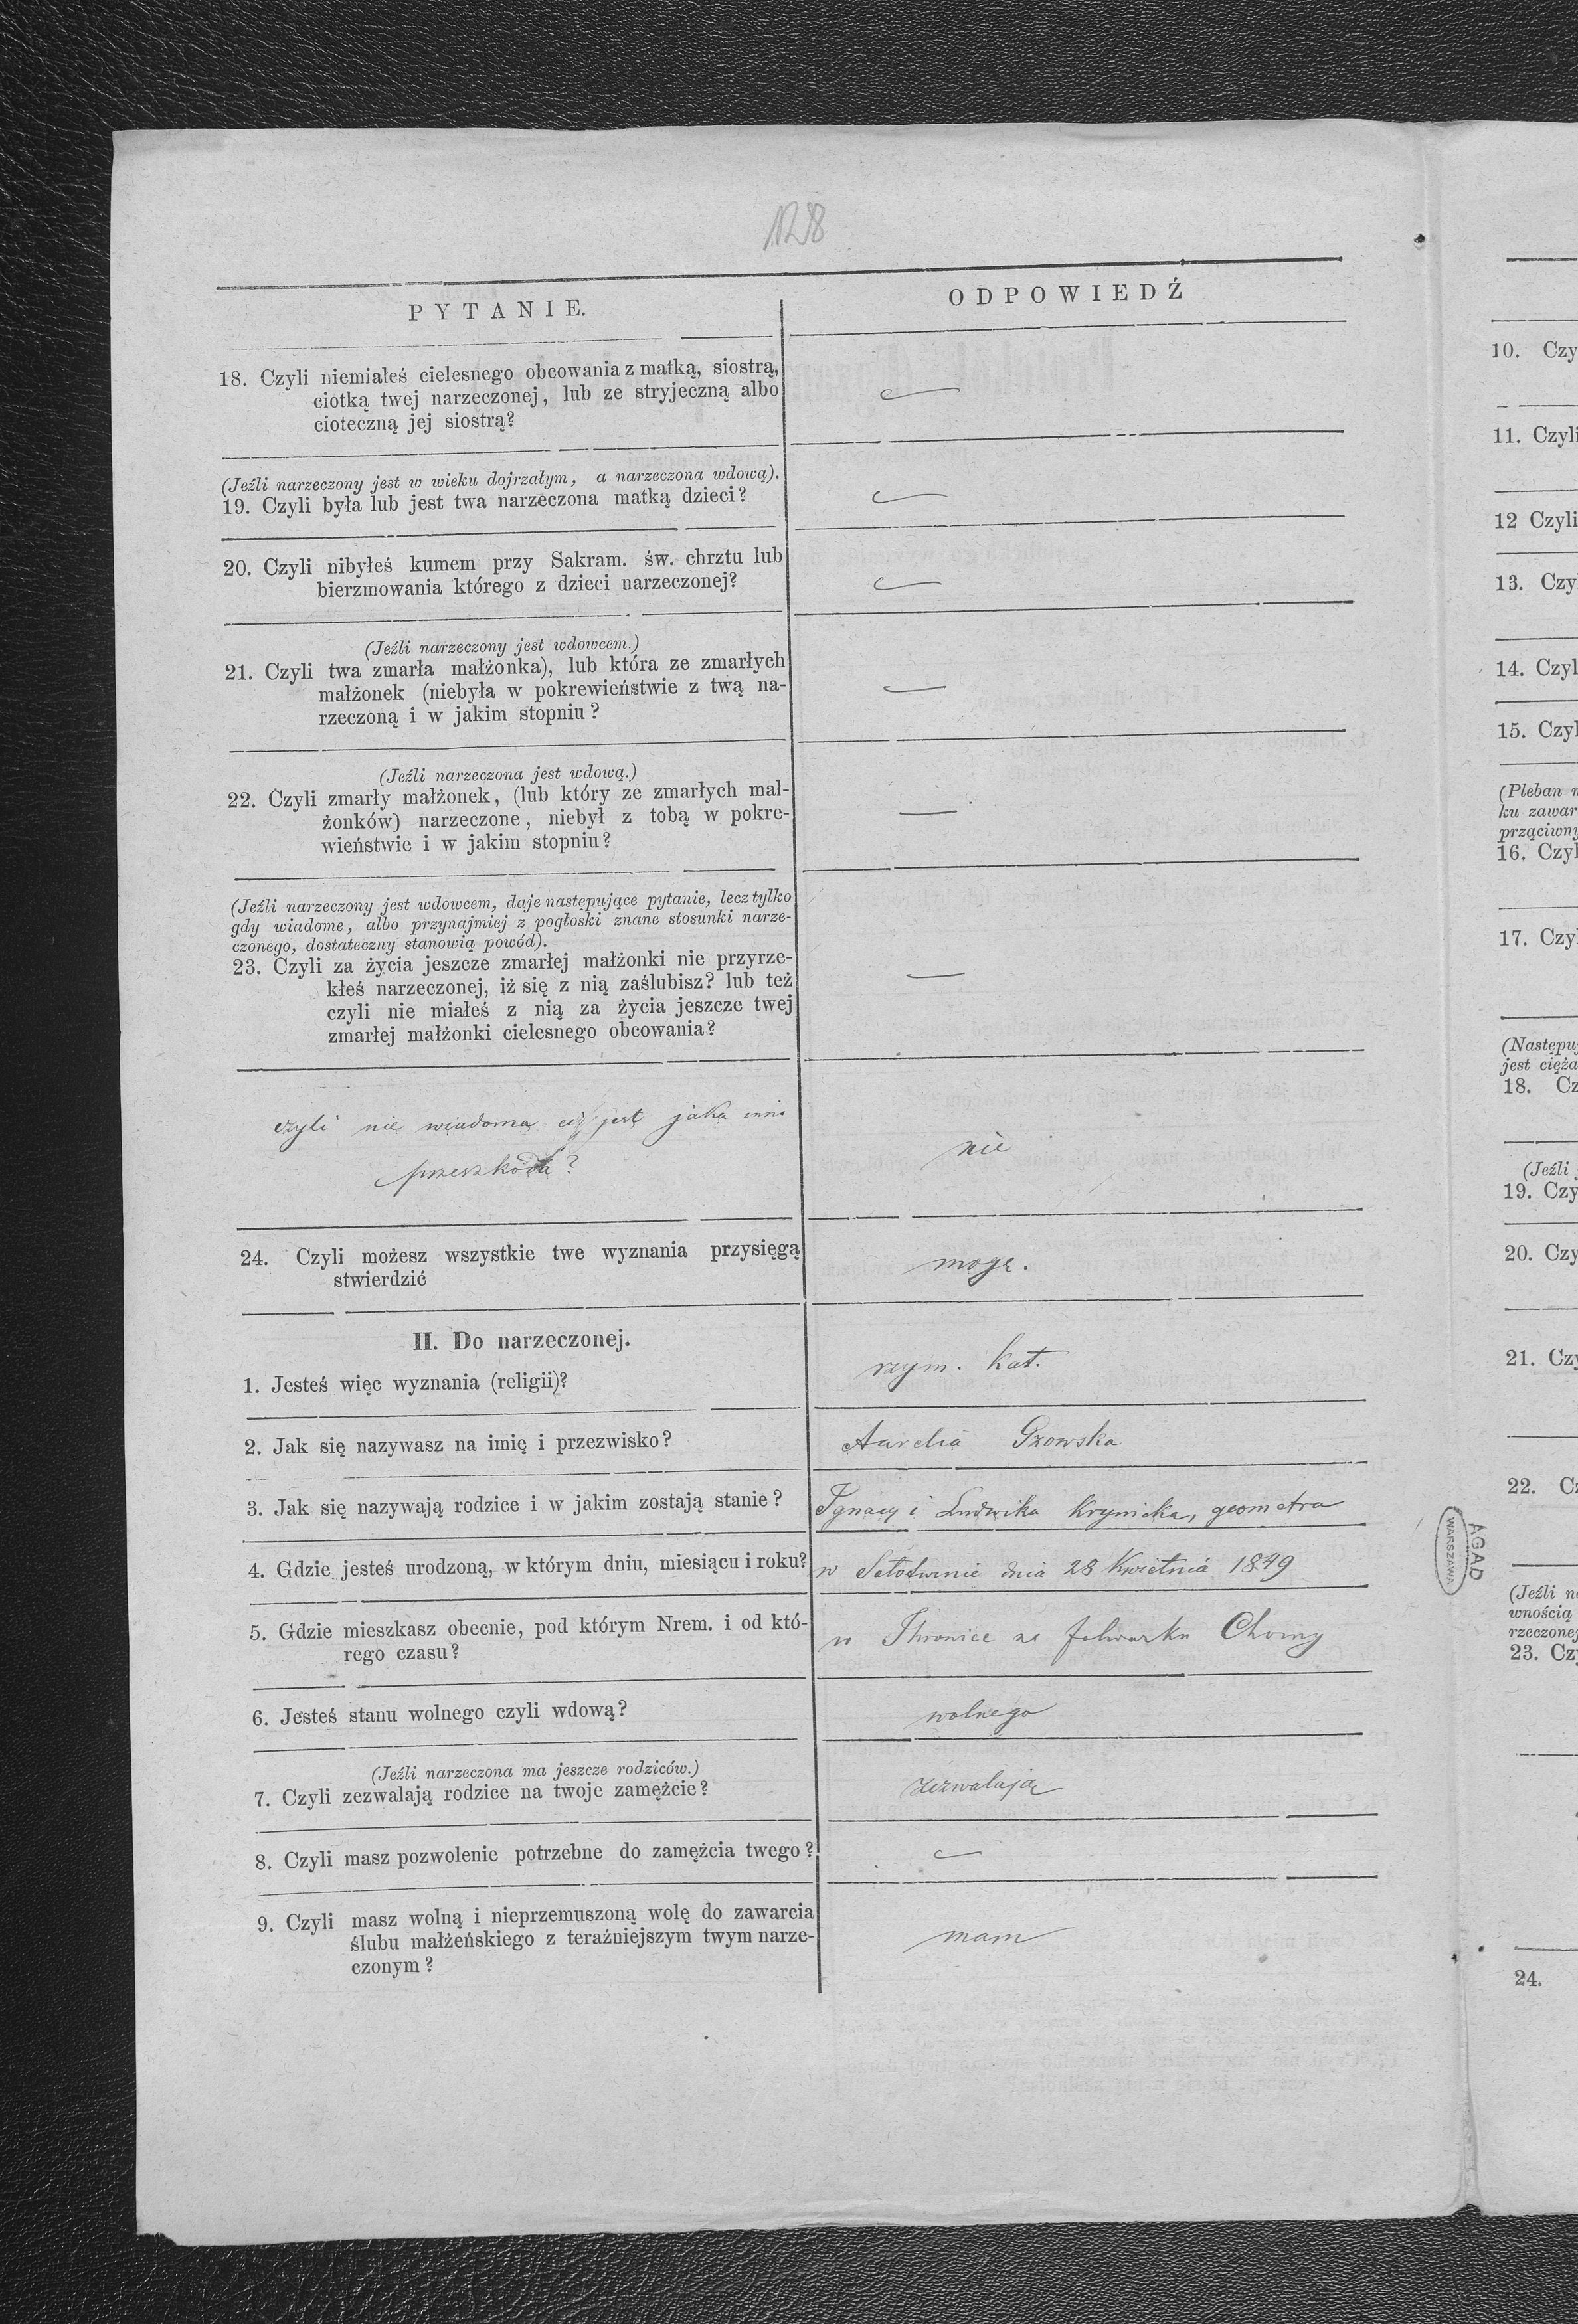 128
PYTANIE.
ODPOWIEDŹ
18. Czyli niemiałeś cielesnego obcowania z matką, siostrą,
ciotką twej narzeczonej, lub ze stryjeczną albo
cioteczną jej siostrą?
—
(Jeźli narzeczony jest w wieku dojrzałym, a narzeczona wdową).
19. Czyli była lub jest twa narzeczona matką dzieci?
—
20. Czyli nibyłeś kumem przy Sakram. św. chrztu lub
bierzmowania którego z dzieci narzeczonej?
—
(Jeźli narzeczony jest wdowcem.)
21. Czyli twa zmarła małżonka), lub która ze zmarłych
małżonek (niebyła w pokrewieństwie z twą na-
rzeczoną i w jakim stopniu?
—
(Jeźli narzeczona jest wdową.)
22. Czyli zmarły małżonek, (lub który ze zmarłych mał-
żonków) narzeczone, niebył z tobą w pokre-
wieństwie i w jakim stopniu?
—
(Jeźli narzeczony jest wdowcem, daje następujące pytanie, lecz tylko
gdy wiadome, albo przynajmiej z pogłoski znane stosunki narze-
czonego, dostateczny stanowią powód).
23. Czyli za życia jeszcze zmarłej małżonki nie przyrze-
kłeś narzeczonej, iż się z nią zaślubisz? lub też
czyli nie miałeś z nią za życia jeszcze twej
zmarłej małżonki cielesnego obcowania?
—
czyli nie wiadoma ci jest jaka inna
przeszkoda?
nie
24. Czyli możesz wszystkie twe wyznania przysięgą
stwierdzić
mogę.
II. Do narzeczonej.
1. Jesteś więc wyznania (religii)?
rzym. kat.
2. Jak się nazywasz na imię i przezwisko?
Aurelia Gzowska
3. Jak się nazywają rodzice i w jakim zostają stanie?
Ignacy i Ludwika Krynicka, geometra
4. Gdzie jesteś urodzoną, w którym dniu, miesiącu i roku?
w Sołotwinie dnia 28 Kwietnia 1849
5. Gdzie mieszkasz obecnie, pod którym Nrem. i od któ-
rego czasu?
w na folwarku Chomy
6. Jesteś stanu wolnego czyli wdową?
wolnego
(Jeźli narzeczona ma jeszcze rodziców.)
7. Czyli zezwalają rodzice na twoje zamężcie?
zezwalają
8. Czyli masz pozwolenie potrzebne do zamężcia twego?
—
9. Czyli masz wolną i nieprzemuszoną wolę do zawarcia
ślubu małżeńskiego z teraźniejszym twym narze-
czonym?
mam
AGAD
WARSZAWA
10. Czy
11. Czyli
12 Czyli
13. Czy
14. Czyl
15. Czyl
(Pleban
ku zawar
prząciwny
16. Czyl
17. Czy
(Następu
jest cięża
18. Cz
(Jeźli
19. Czy
20. Czy
21. Czy
22. Cz
(Jeźli
wnością
rzeczonej
23. Czy
24.